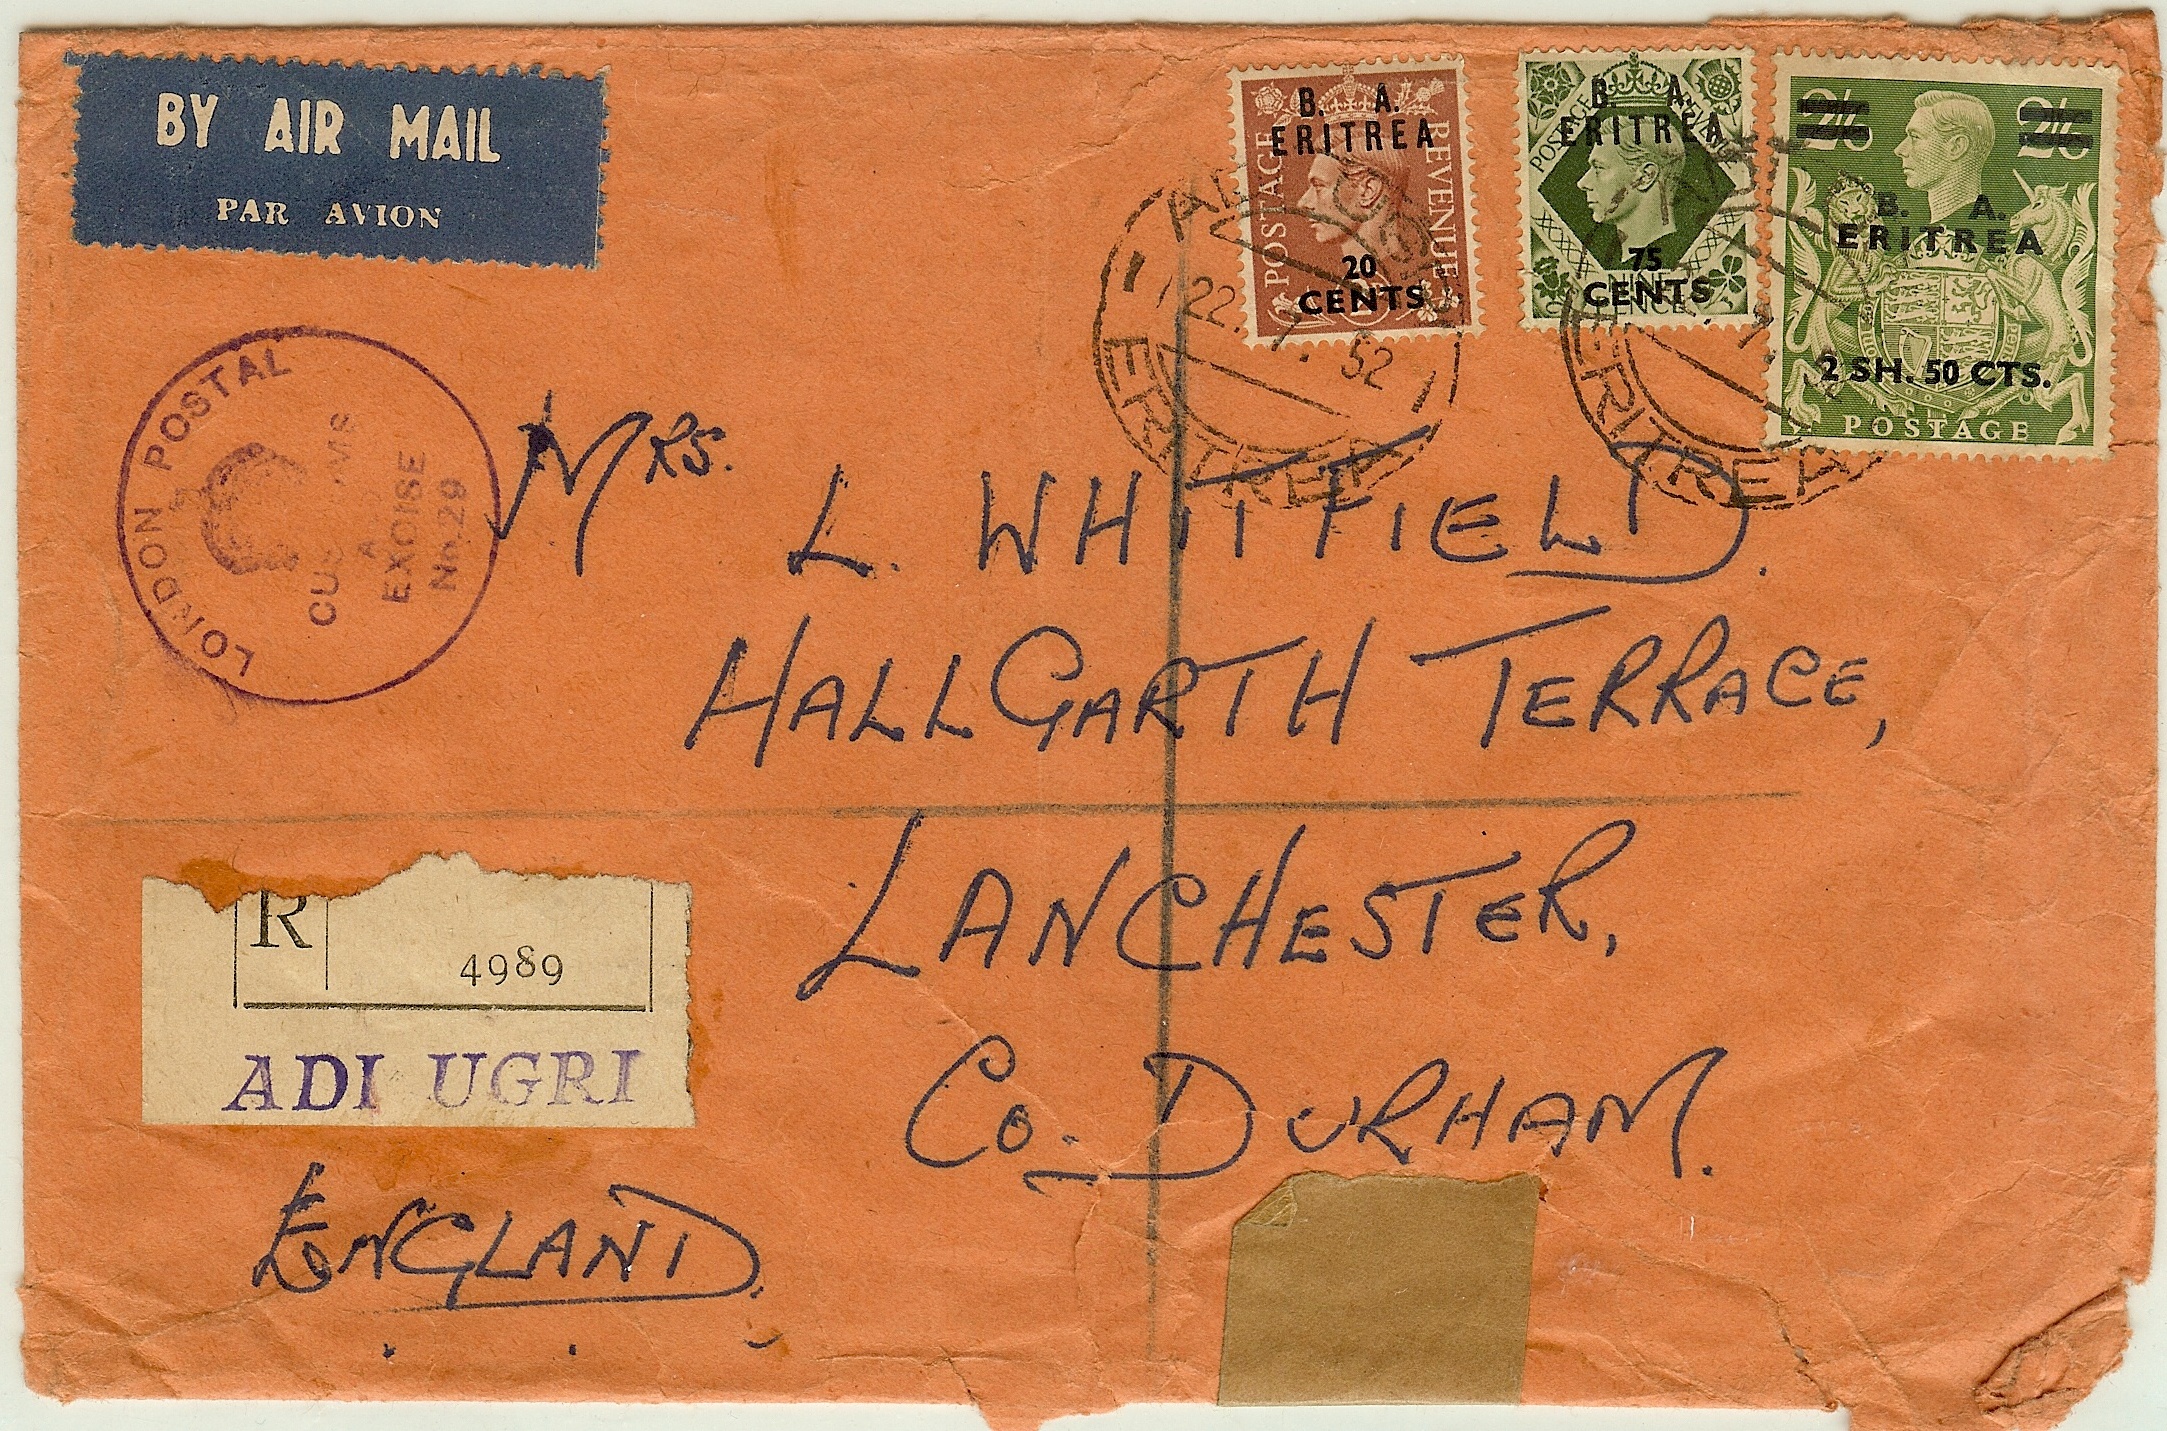 BY AIR MAIL
PAR AVION
B. A.
ERITREA
POSTAGE
REVENUE
20
CENTS
B. A.
ERITREA
POSTAGE
REVENUE
75
CENTS
NINE
PENCE
2/6
2/6
B. A.
ERITREA
2 SH. 50 CTS.
POSTAGE
22. 52
ERITREA
ERITREA
LONDON POSTAL
EXCISE
No. 29
MRS.
L. WHITFIELD.
HALLGARTH TERRACE,
LANCHESTER,
Co. DURHAM.
R
4989
ADI UGRI
ENGLAND.